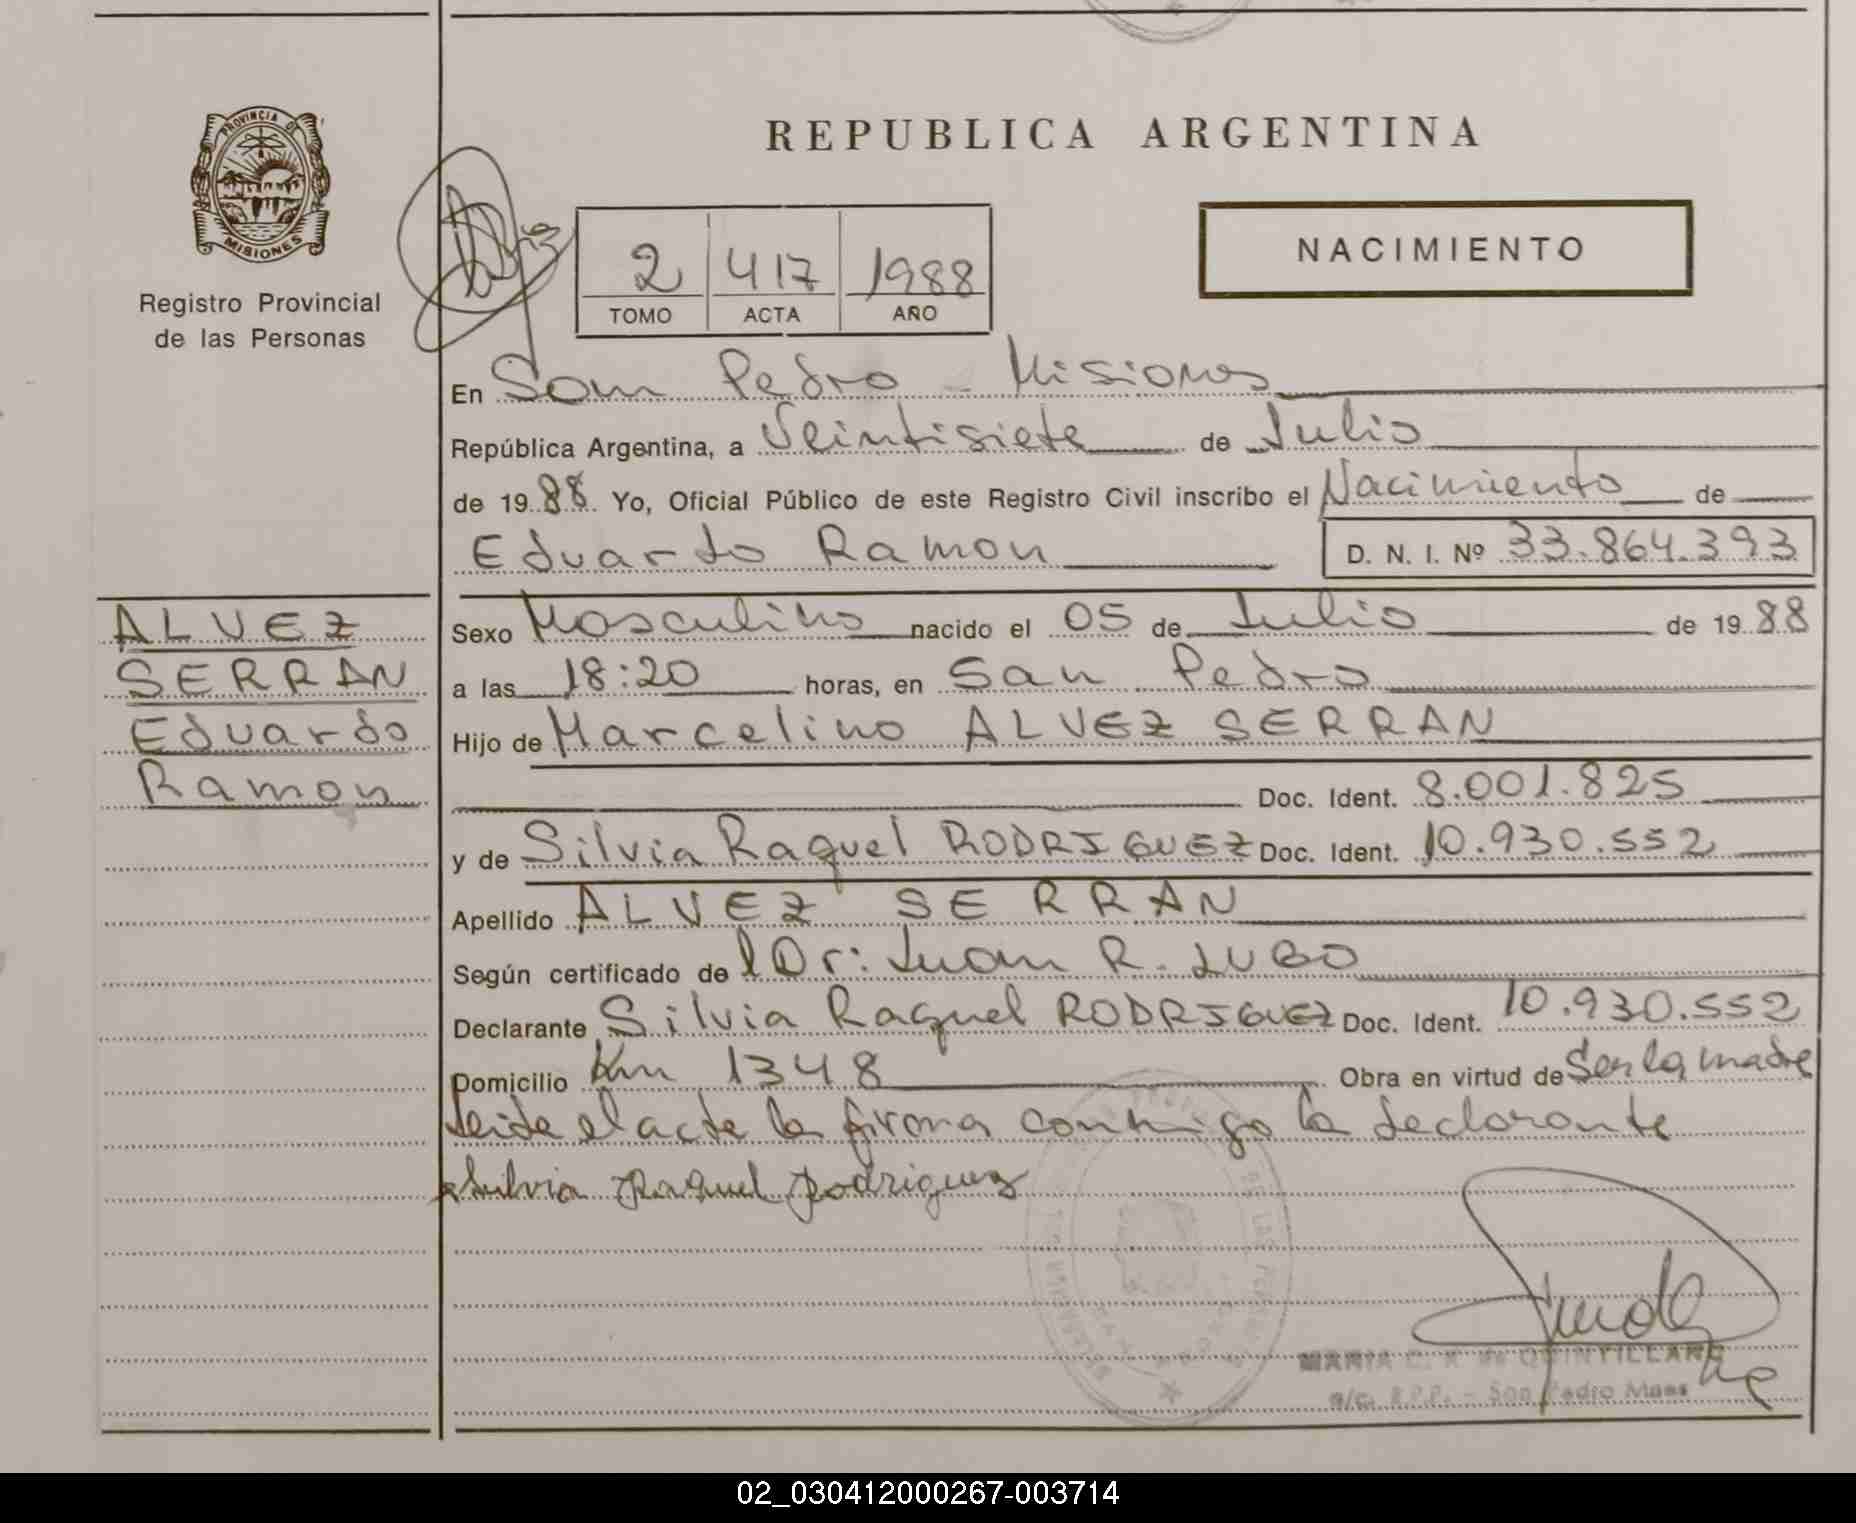 PROVINCIA DE
MISIONES
Registro Provincial
de las Personas
REPUBLICA ARGENTINA
2 417 1988
TOMO ACTA AÑO
NACIMIENTO
En San Pedro - Misiones
República Argentina, a Veintisiete de Julio
de 1988 Yo, Oficial Público de este Registro Civil inscribo el Nacimiento de
Eduardo Ramon D. N. I. Nº 33.864.393
ALVEZ
SERRAN
Eduardo
Ramon
Sexo Masculino nacido el 05 de Julio de 1988
a las 18:20 horas, en San Pedro
Hijo de Marcelino ALVEZ SERRAN
Doc. Ident. 8.001.825
y de Silvia Raquel RODRIGUEZ Doc. Ident. 10.930.552
Apellido ALVEZ SERRAN
Según certificado de l Dr: Juan R. LUGO
Declarante Silvia Raquel RODRIGUEZ Doc. Ident. 10.930.552
Domicilio Km 1348 Obra en virtud de Ser la madre
Leida el acta la firma conmigo la declarante
Silvia Raquel Rodriguez
MARIA C. K de QUINTILLANE
a/c. R.P.P. - San Pedro Mnes
02_030412000267-003714